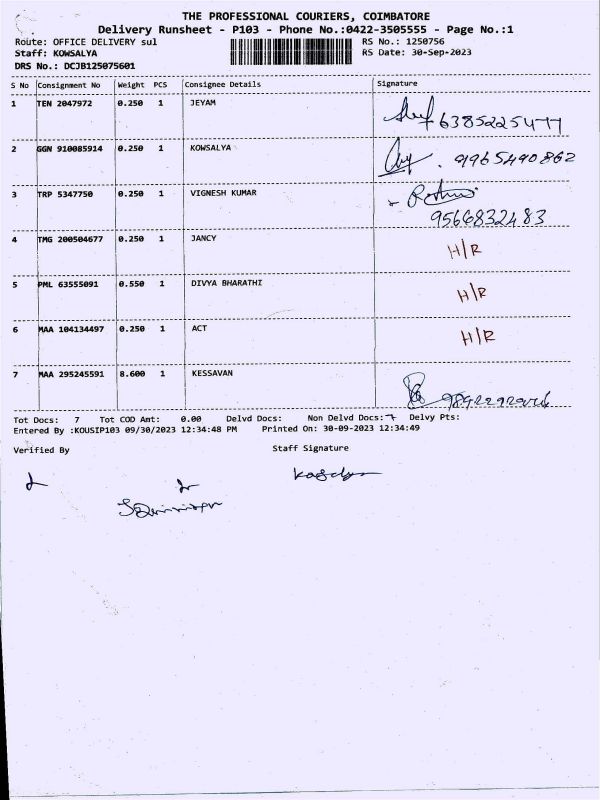 THE PROFESSIONAL COURIERS, COIMBATORE
Delivery Runsheet - P103 - Phone No.:0422-3505555 - Page No.:1
Route: OFFICE DELIVERY sul RS No.: 1250756
Staff: KOWSALYA RS Date: 30-Sep-2023
DRS No.: DCJB125075601
S No Consignment No Weight PCS Consignee Details Signature
1 TEN 2047972 0.250 1 JEYAM
2 GGN 910085914 0.250 1 KOWSALYA 9965490862
3 TRP 5347750 0.250 1 VIGNESH KUMAR
9566832483
4 TMG 200504677 0.250 1 JANCY H/R
5 PML 63555091 0.550 1 DIVYA BHARATHI H/R
6 MAA 104134497 0.250 1 ACT H/R
7 MAA 295245591 8.600 1 KESSAVAN
Tot Docs: 7 Tot COD Amt: 0.00 Delvd Docs: Non Delvd Docs: 7 Delvy Pts:
Entered By :KOUSIP103 09/30/2023 12:34:48 PM Printed On: 30-09-2023 12:34:49
Verified By Staff Signature